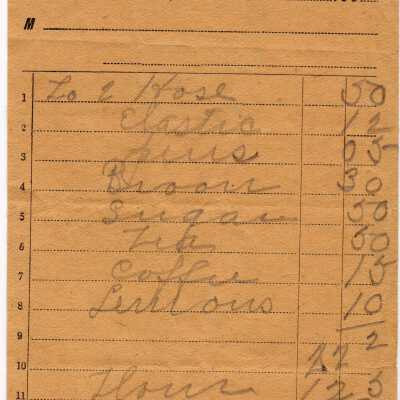 M
1 To 2 Hose 50
2 Elastic 12
3 pins 05
4 Broom 30
5 Sugar 50
6 Tea 50
7 Coffee 15
8 Lemons 10
9 2
10 22
11 Flour 12 5